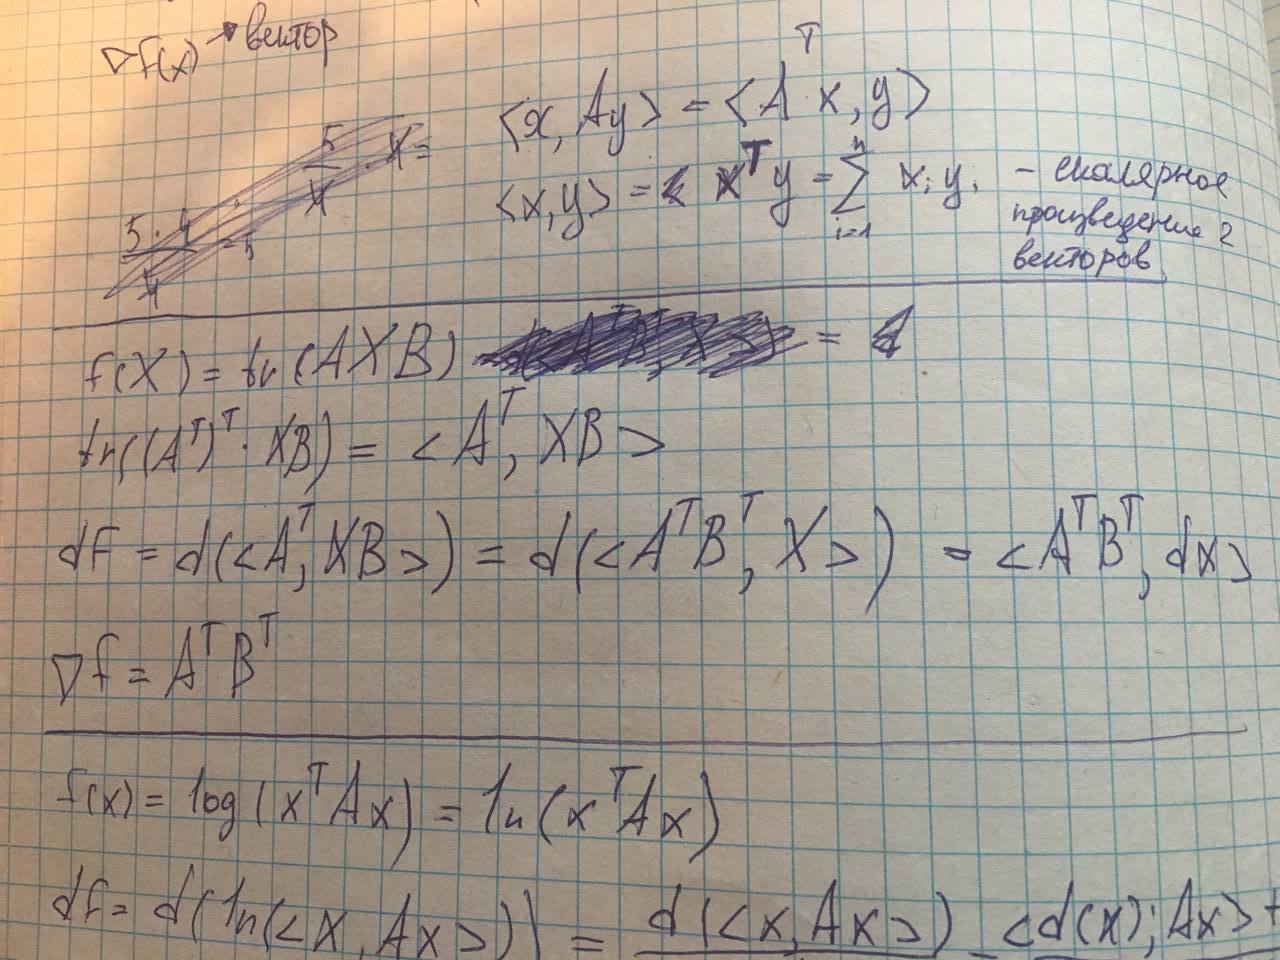 ∇f(x) → вектор
⟨x, Ay⟩ = ⟨Aᵀx, y⟩
⟨x, y⟩ = xᵀy = ∑ⁿᵢ₌₁ xᵢyᵢ - скалярное
произведение 2
векторов
5/4 · 4 =
5·4/4 = 5
f(X) = tr(AXB) =
tr((Aᵀ)ᵀ · XB) = <Aᵀ, XB>
df = d(<Aᵀ, XB>) = d(<AᵀBᵀ, X>) = <AᵀBᵀ, dx>
∇f = AᵀBᵀ
f(x) = log(xᵀAx) = ln(xᵀAx)
df = d(ln(<x, Ax>)) = d(<x, Ax>) = <d(x); Ax> +